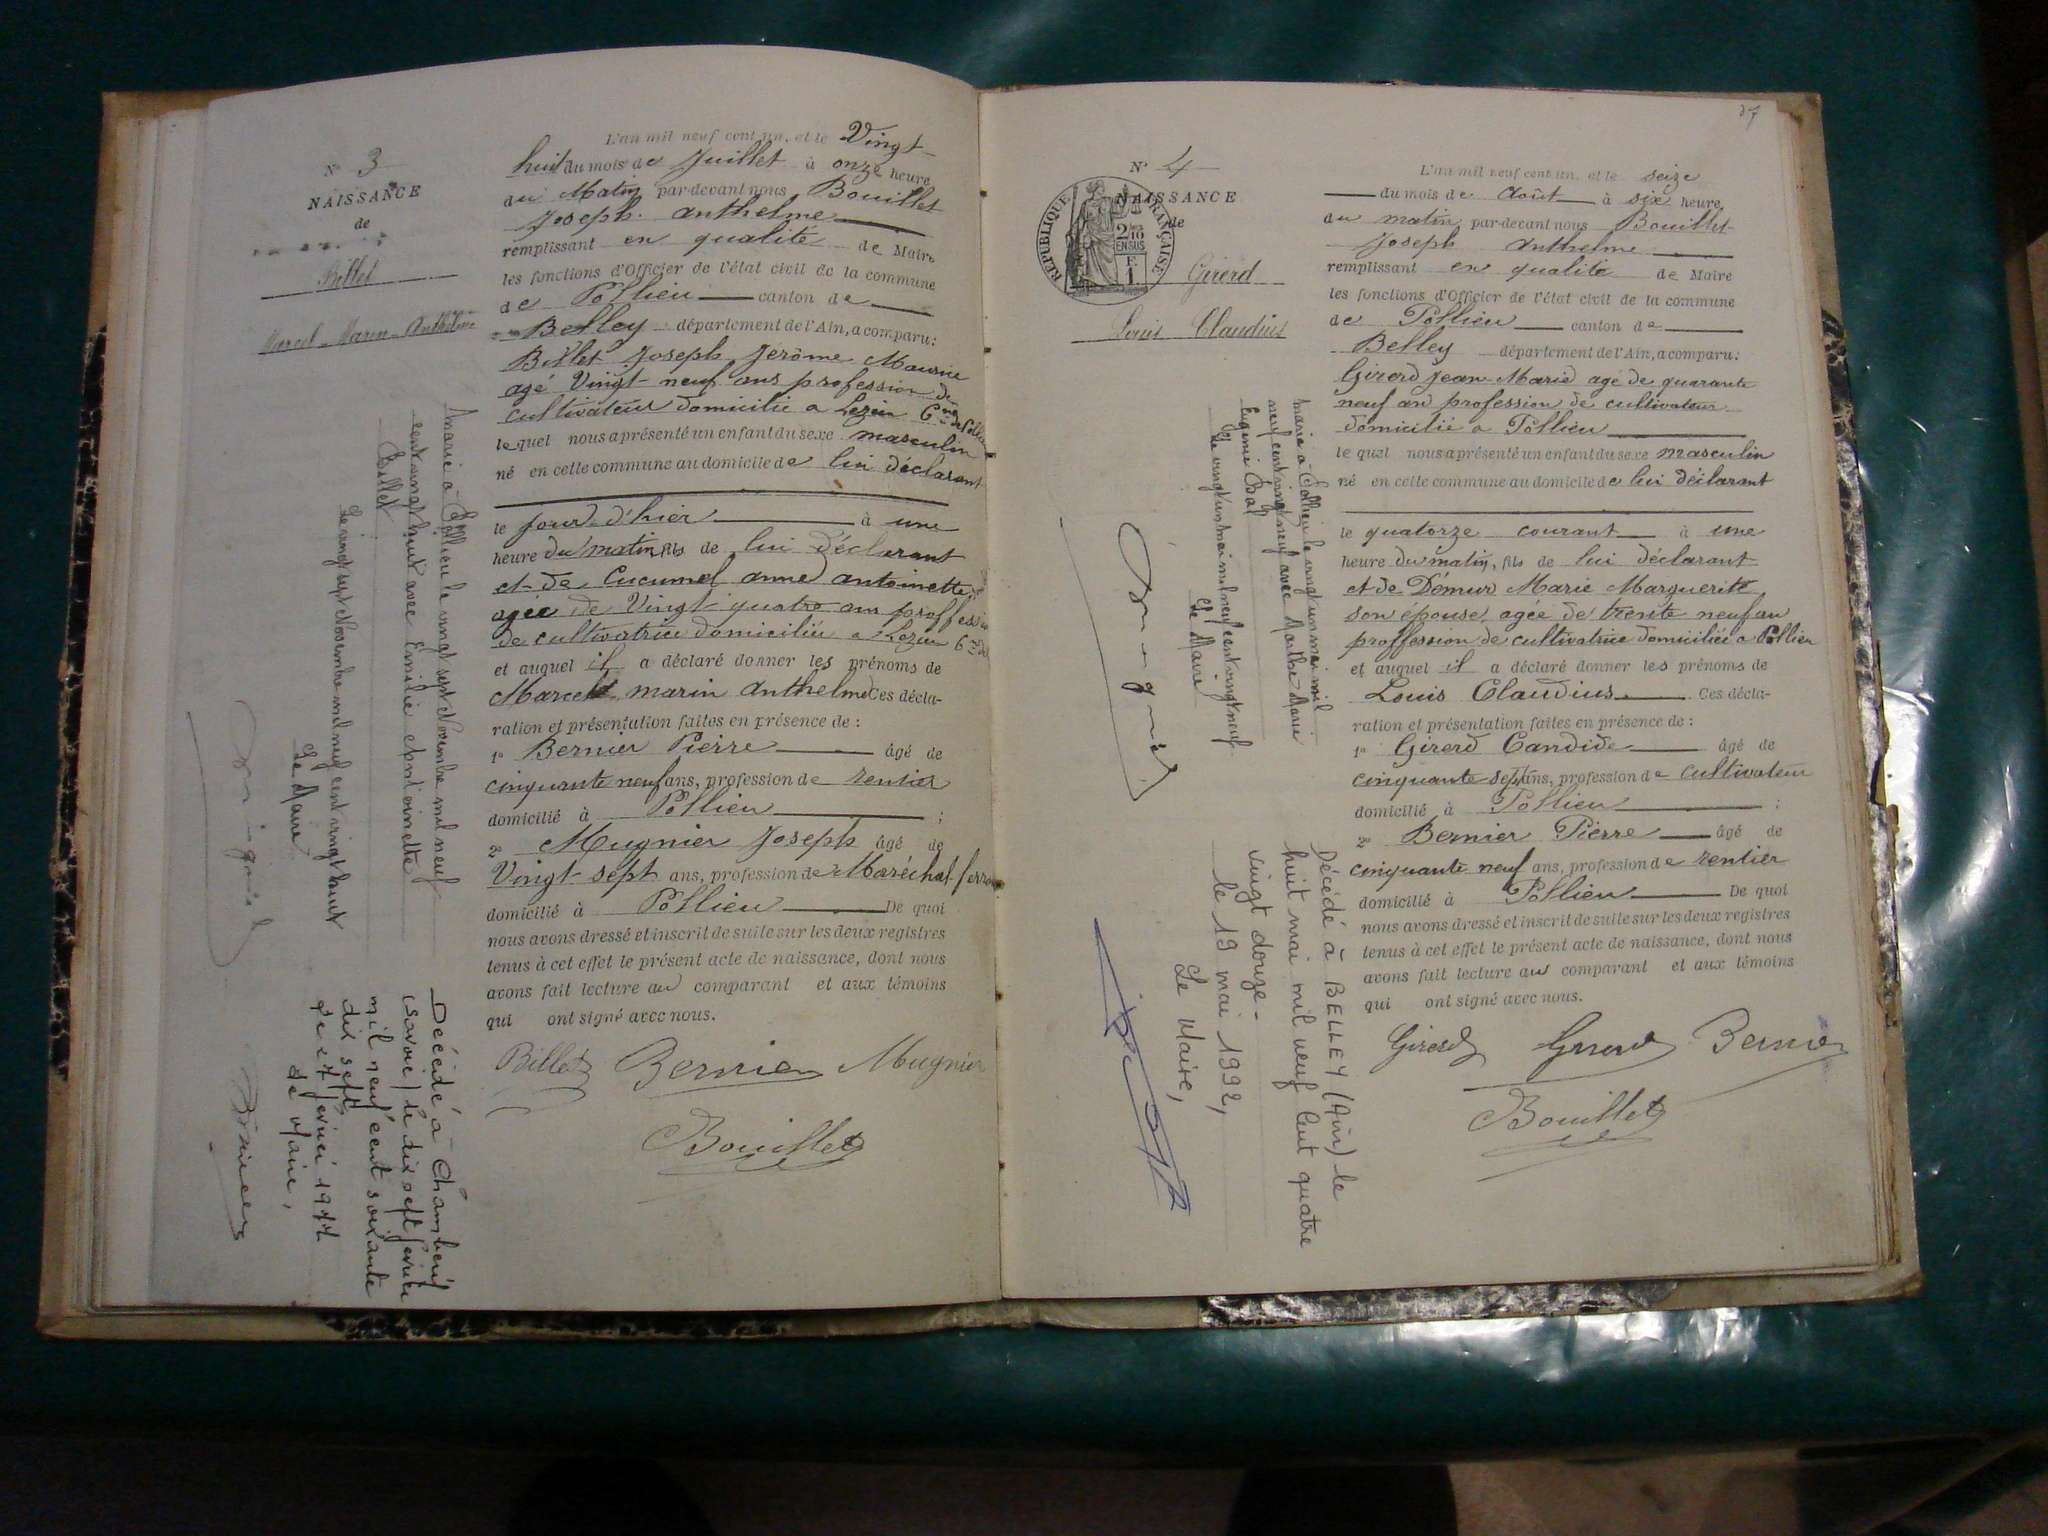 N° 3
NAISSANCE
de
Billet
Marcel-Marin-Anthelme
L'an mil neuf cent un, et le Vingt
huit du mois de Juillet à onze heure
du Matin par-devant nous Bouillet
Joseph Anthelme
remplissant en qualité de Maire
les fonctions d'Officier de l'état civil de la commune
de Pollieu canton de
Belley département de l'Ain, a comparu:
Billet Joseph Jérôme Maurice
agé Vingt-neuf ans profession de
cultivateur domicilié a Lezin Cne de Pollieu
le quel nous a présenté un enfant du sexe masculin
né en cette commune au domicile de lui déclarant
le jour d'hier à une
heure du matin, fils de lui déclarant
et de Cucumel anne antoinette
agée de Vingt quatre ans proffession
de cultivatrice domiciliée a Lezin Cne de
et auquel il a déclaré donner les prénoms de
Marcel marin anthelme Ces décla-
ration et présentation faites en présence de :
1° Bernier Pierre âgé de
cinquante neuf ans, profession de rentier
domicilié à Pollieu ;
2° Mugnier Joseph âgé de
Vingt sept ans, profession de Maréchal ferrant
domicilié à Pollieu De quoi
nous avons dressé et inscrit de suite sur les deux registres
tenus à cet effet le présent acte de naissance, dont nous
avons fait lecture au comparant et aux témoins
qui ont signé avec nous.
Billet Bernier Mugnier
Bouillet
Marié à Pollieu le vingt sept Novembre mil neuf
cent vingt huit avec Emilie Antoinette
Billet
Le vingt sept Novembre mil neuf cent vingt huit
Le Maire
Décédé à Chambéry
(Savoie) le dix sept février
mil neuf cent soixante
dix sept
Le 27 février 1977
Le Maire,
37
N° 4
NAISSANCE
de
RÉPUBLIQUE FRANÇAISE
2/10
EN SUS
F.
1
Girerd
Louis Claudius
L'an mil neuf cent un, et le seize
du mois de Août à six heure
du matin par-devant nous Bouillet
Joseph Anthelme
remplissant en qualité de Maire
les fonctions d'Officier de l'état civil de la commune
de Pollieu canton de
Belley département de l'Ain, a comparu:
Girerd Jean-Marie agé de quarante
neuf ans profession de cultivateur
domicilié a Pollieu
le quel nous a présenté un enfant du sexe masculin
né en cette commune au domicile de lui déclarant
le quatorze courant à une
heure du matin, fils de lui déclarant
et de Démur Marie Marguerite
son épouse, agée de trente neuf an
proffession de cultivatrice domiciliée a Pollieu
et auquel il a déclaré donner les prénoms de
Louis Claudius Ces décla-
ration et présentation faites en présence de :
1° Girerd Candide âgé de
cinquante sept ans, profession de cultivateur
domicilié à Pollieu ;
2° Bernier Pierre âgé de
cinquante neuf ans, profession de rentier
domicilié à Pollieu De quoi
nous avons dressé et inscrit de suite sur les deux registres
tenus à cet effet le présent acte de naissance, dont nous
avons fait lecture au comparant et aux témoins
qui ont signé avec nous.
Girerd Girerd Bernier
Bouillet
Marié à Pollieu le vingt un mai mil
neuf cent vingt neuf avec Marthe Marie
Eugénie
Le vingt un mai mil neuf cent vingt neuf
Le Maire
Décédé à BELLEY (Ain) le
huit mai mil neuf Cent quatre
vingt douze -
le 19 mai 1992,
Le Maire,